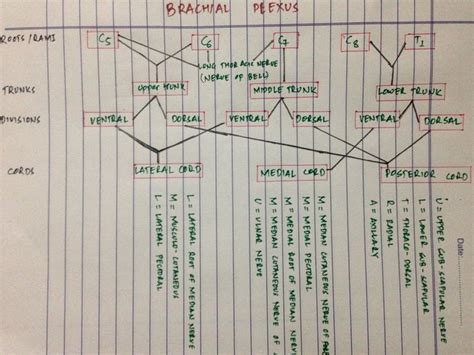 BRACHIAL PLEXUS
ROOTS/RAMI C5 C6 C7 C8 T1
LONG THORACIC NERVE
(NERVE OF BELL)
TRUNKS Upper trunk MIDDLE TRUNK LOWER TRUNK
DIVISIONS VENTRAL DORSAL VENTRAL DORSAL VENTRAL DORSAL
CORDS LATERAL CORD MEDIAL CORD POSTERIOR CORD
L = LATERAL ROOT OF MEDIAN NERVE
M = MUSCULO-CUTANEOUS
L = LATERAL PECTORAL
M = MEDIAN CUTANEOUS NERVE OF
M = MEDIAL PECTORAL
M = MEDIAL ROOT OF MEDIAN NERVE
M = MEDIAN CUTANEOUS NERVE OF
U = ULNAR NERVE
U = UPPER SUB-SCAPULAR NERVE
L = LOWER SUB-SCAPULAR
T = THORACO-DORSAL
R = RADIAL
A = AXILLARY
Date